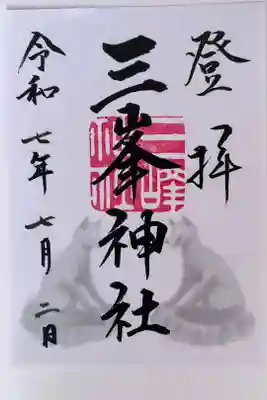 登拝
三峯神社
令和七年七月二日